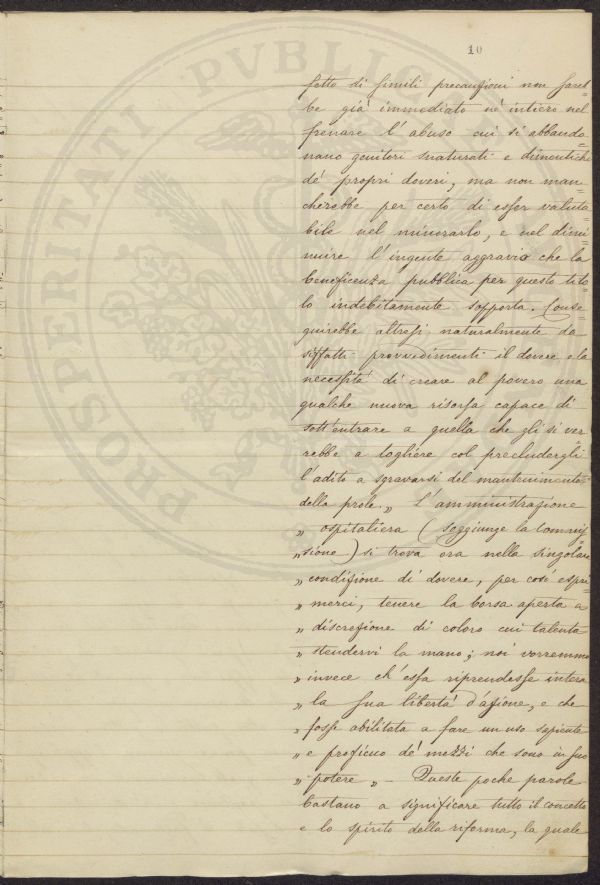 10
fetto di simili precauzioni non sareb=
be già immediato nè intiero nel
frenare l'abuso cui si abbando=
nano genitori snaturati e dimentichi
de' propri doveri, ma non man=
cherebbe per certo di esser valuta=
bile nel minorarlo, e nel dimi=
nuire l'ingente aggravio che la
beneficenza pubblica per questo tito=
lo indebitamente sopporta. Conse=
guirebbe altresì naturalmente da
siffatti provvedimenti il dovere e la
necessità di creare al povero una
qualche nuova risorsa capace di
sott'entrare a quella che gli si ver
rebbe a togliere col precludergli
l'adito a sgravarsi del mantenimento
della prole. „ L'amministrazione
„ ospitaliera (soggiunge la Commis=
„ sione) si trova ora nella singolare
„ condizione di dovere, per così espri=
„ merci, tenere la borsa aperta a
„ discrezione di coloro cui talenta
„ stendervi la mano; noi vorremmo
„ invece ch'essa riprendesse intera
„ la sua libertà d'azione, e che
„ fosse abilitata a fare un uso sapiente
„ e proficuo de' mezzi che sono in suo
„ potere „ - Queste poche parole
bastano a significare tutto il concetto
e lo spirito della riforma, la quale
PROSSIMI
PRIVATI
PVBLICO